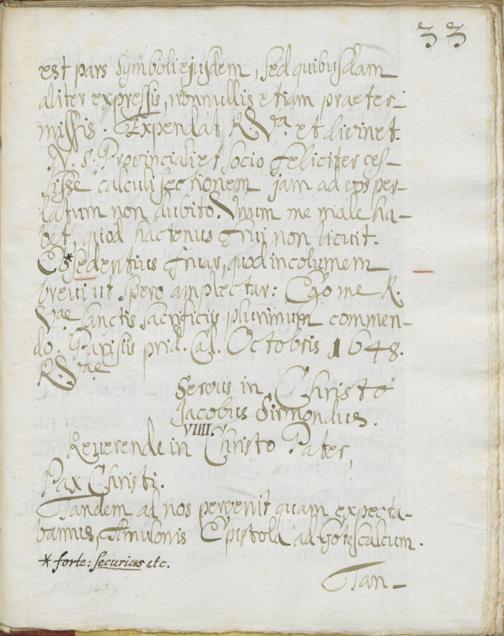 33
est pars symboli ejusdem, sed quibusdam
aliter expressis, nonnullis etiam praeter-
missis. Expendat R Vra. et divinet.
N. s. Provinciali et socio feliciter ces-
sisse calculi sectionem jam ad vos per-
latum non dubito. Unum me male ha-
bet, quod hactenus frui non licuit.
Eo *sedentius fruar, quod incolumem
brevi ut spero amplectar: Ego me R.
Vae sanctis sacrificiis plurimum commen-
do. Parisiis prid. Cal. Octobris 1648.
RVae
Servus in Christo
Jacobus Sirmondus.
VIIII.
Reverende in Christo Pater
Pax Christi.
Tandem ad nos pervenit quam expecta-
bamus, Amulonis Epistola ad Gotescalcum.
* forte: securius etc.
Tan-